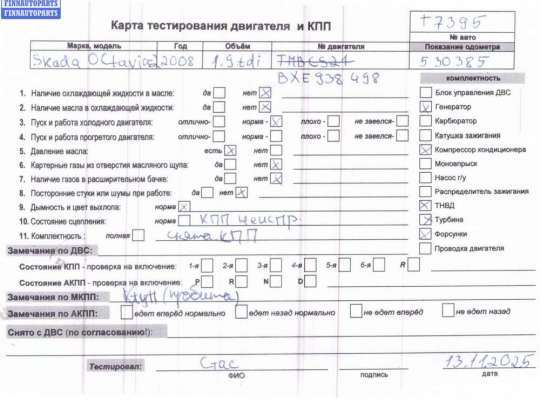 FINNAUTOPARTS
FINNAUTOPARTS
Карта тестирования двигателя и КПП
т7395
№ авто
Марка, модель Год Объём № двигателя Показание одометра
Skoda Octavia 2 2008 1.9 tdi 530385
BXE 938 498
комплектность
1. Наличие охлаждающей жидкости в масле: да нет
2. Наличие масла в охлаждающей жидкости: да нет
3. Пуск и работа холодного двигателя: отлично- норма - плохо - не завелся-
4. Пуск и работа прогретого двигателя: отлично- норма - плохо - не завелся-
5. Давление масла: есть нет
6. Картерные газы из отверстия масляного щупа: да нет
7. Наличие газов в расширительном бачке: да нет
8. Посторонние стуки или шумы при работе: да нет
9. Дымность и цвет выхлопа: норма
10. Состояние сцепления: норма КПП неиспр.
11. Комплектность : полная снята КПП
Блок управления ДВС
Генератор
Карбюратор
Катушка зажигания
Компрессор кондиционера
Моновпрыск
Насос г/у
Распределитель зажигания
ТНВД
Турбина
Форсунки
Проводка двигателя
Замечания по ДВС:
Состояние КПП - проверка на включение: 1-я 2-я 3-я 4-я 5-я 6-я R
Состояние АКПП - проверка на включение: P R N D
Замечания по МКПП: (пробита)
Замечания по АКПП: едет вперёд нормально едет назад нормально не едет вперёд не едет назад
Снято с ДВС (по согласованию!):
Тестировал: Стас 13.11.2025
ФИО подпись дата